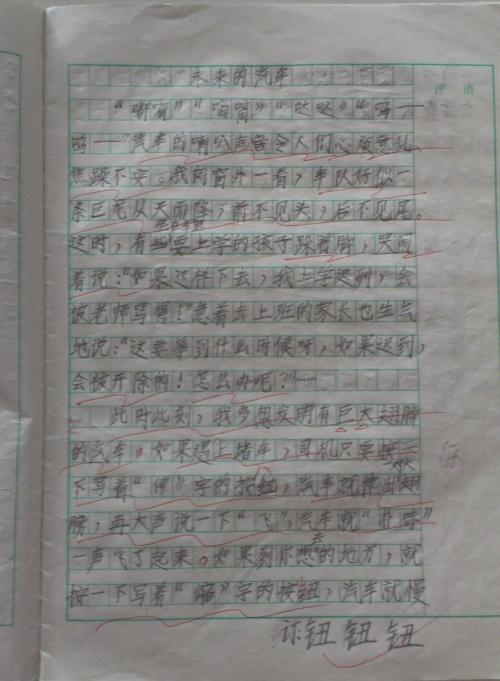 未来的汽车
评语
“嘀嘀”“哒哒”“呜——
呜——”汽车的喇叭声音令人们心烦意乱、
焦躁不安。我向窗外一看，车队好似一
条巨龙从天而降，前不见头，后不见尾。
这时，有些要上学的孩子跺着脚，哭丧
着说：“如果这样下去，我上学迟到，会
被老师骂得！”急着去上班的家长也生气
地说：“这要等到什么时候呀，如果迟到，
会被开除的！怎么办呢？”……
此时此刻，我多想发明有巨大翅膀
的汽车。如果遇上堵车，司机只要按一
下写着“伸”字的按钮，汽车就伸出翅
膀，再大声说一下“飞”，汽车就
一声飞了起来。如果到你想去的地方，就
按一下写着“缩”字的按钮，汽车就慢
订：钮 钮 钮